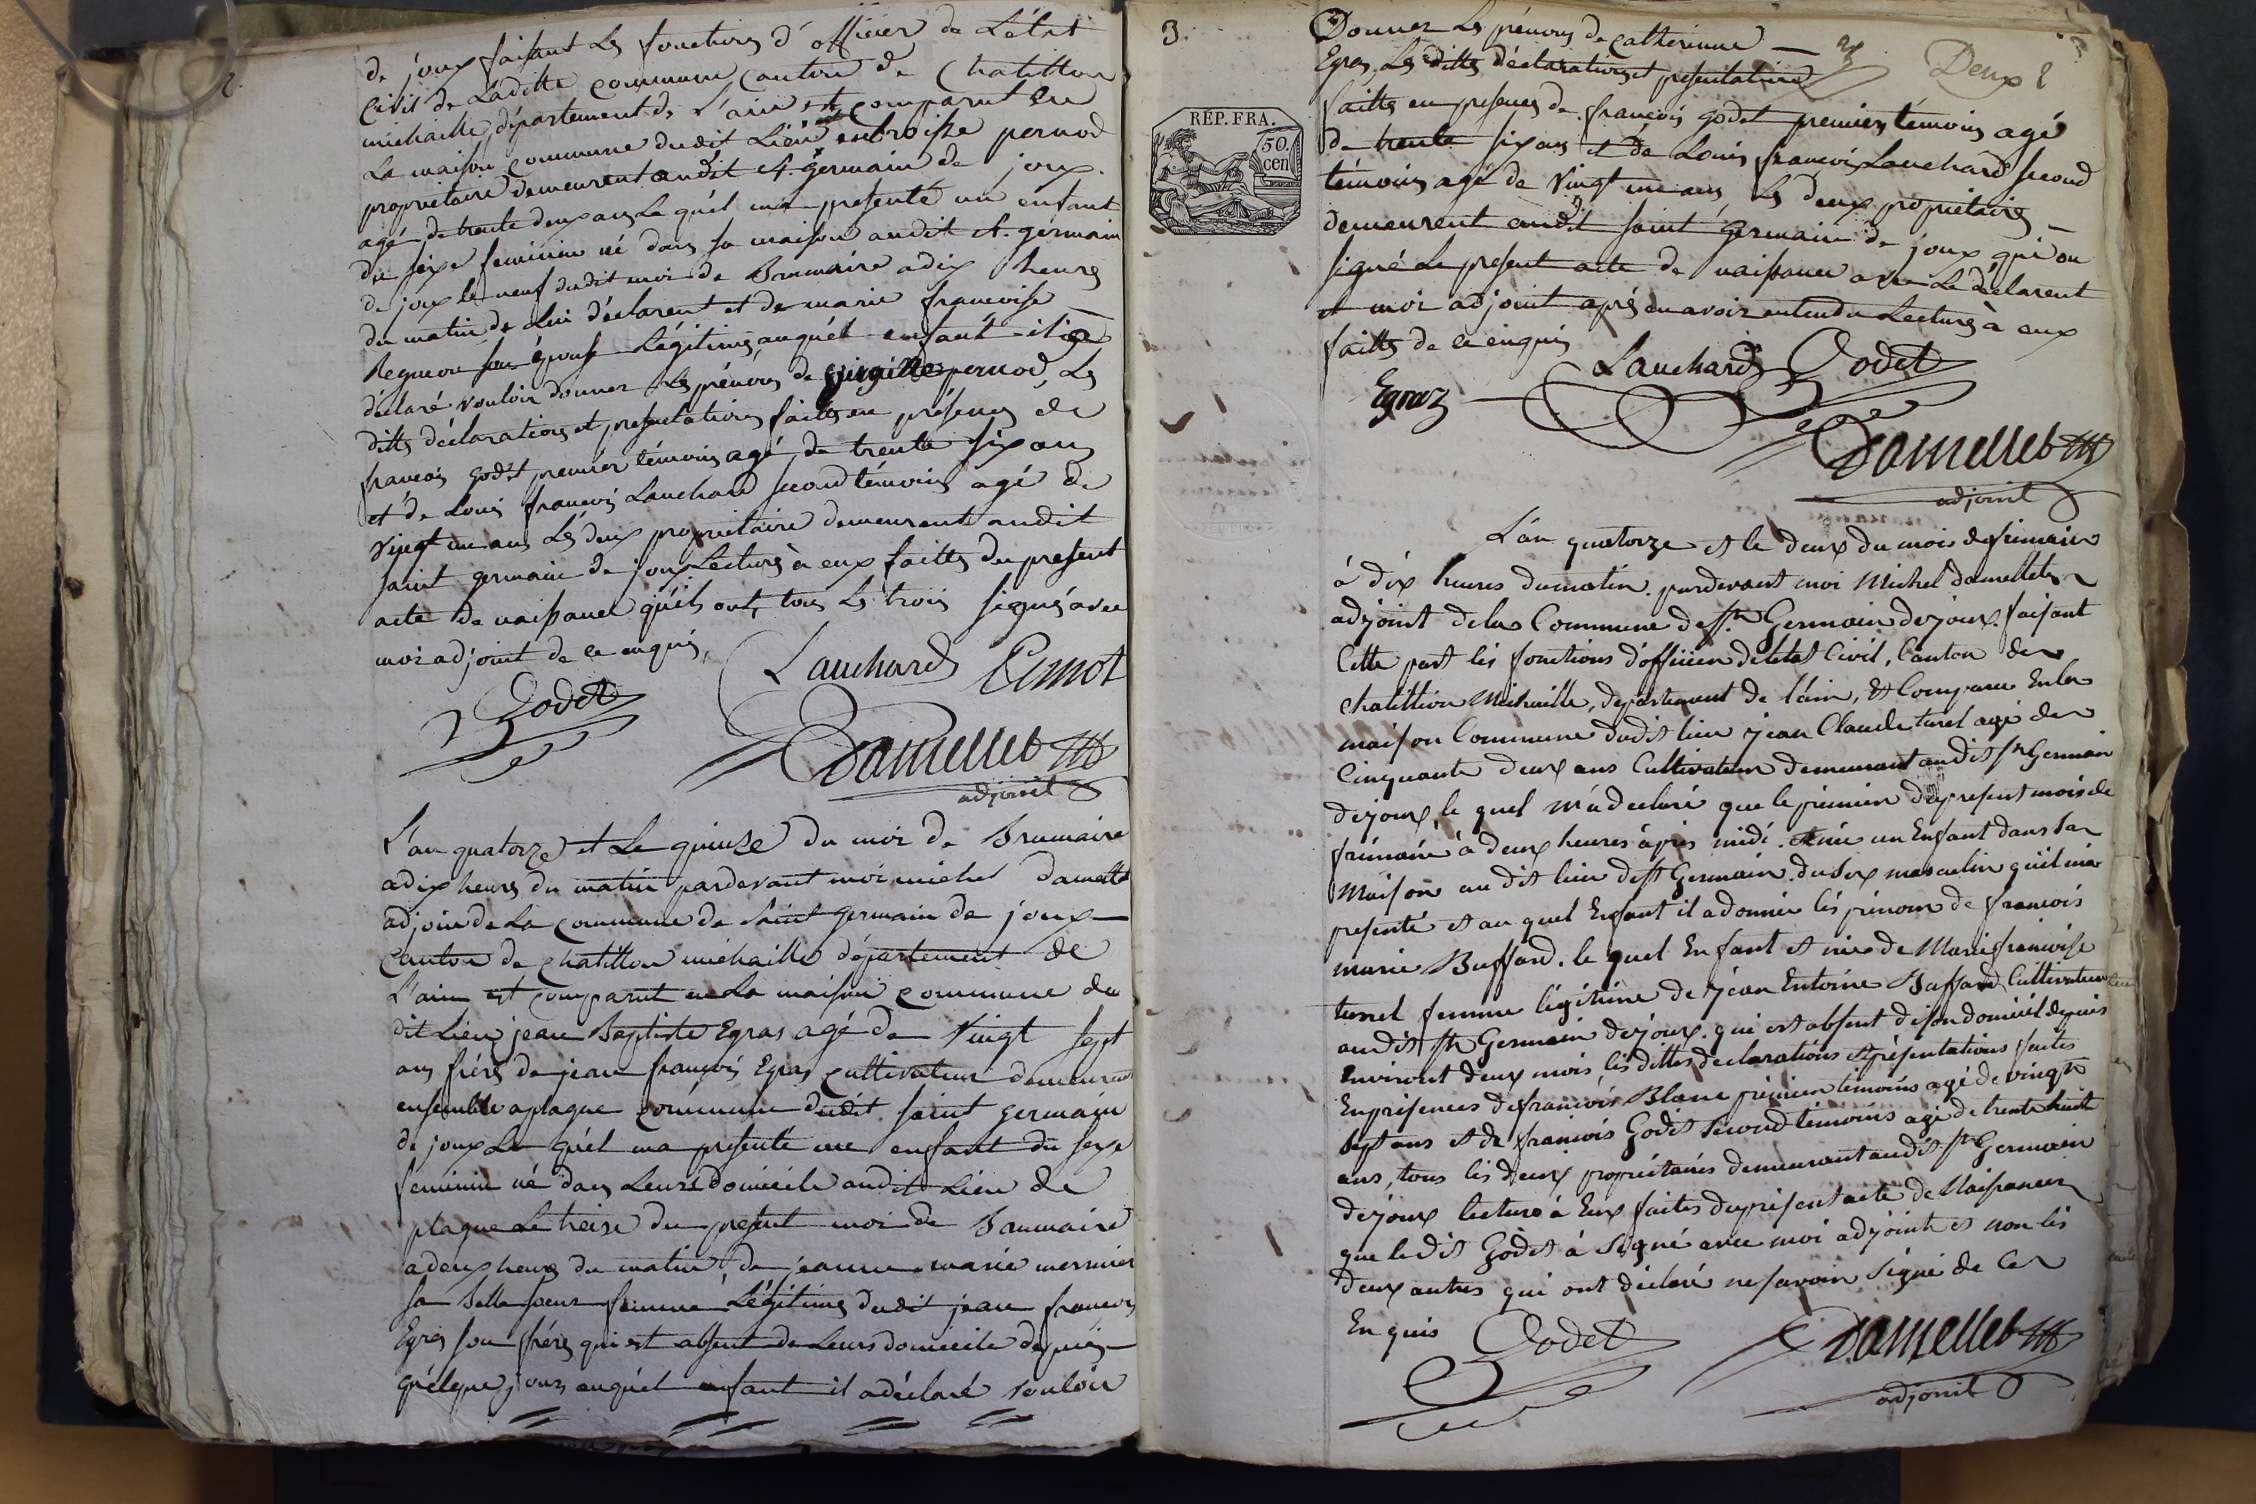 2.
de joux faisant les fonctions d'officier de L'état
Civil de Laditte commune canton de Chatillon
michaille, département de L'ain est comparut en
La maison commune dudit Lieu ambroisse pernod
propriétaire demeurent audit st. germain de joux.
agé de trente deux ans Le quél ma presenté un enfant
du sexe feminin né dans sa maison audit st. germain
de joux le neuf dudit moi de Brumaire a dix heures
du matin de Lui déclarent et de marie francoise
son épouse Légitime, auquél enfant il a
déclaré vouloir donner les prénoms de pernod, Les
dittes déclarations et presentations faittes en présences de
francois godet premier témoins agé de trente six ans
et de Louis francois Lauchard second témoins agé de
vingt un ans Les deux propriétaire demeurent audit
saint germain de joux Lectures à eux faittes du present
acte de naissance qu'ils ont, tous Les trois signés avec
moi adjoint de ce enquis,
Lauchard
Godet
Damellet
adjoint
L'an quatorze et Le quinze du moi de Brumaire
a dix heures du matin pardevant moi michel damellet
adjoin de La commune de saint germain de joux
canton de chatillon michaille département de
L'ain est comparut en La maison commune du
dit Lieu, jean Baptiste Egras agé de Vingt sept
ans fréré de jean françois Egras cultivateur demeurent
ensemble a plague commune dudit saint germain
de joux Le quél ma presenté une enfant du sexe
feminin né dans Leurs domicile audit Lieu de
plague Le treize du present moi de Brumaire
a deux heures du matin de jeanne marie mermier
sa Belle soeur femme Légitime dudit jean francois
Egras son fréré qui est absent de Leurs domicile depuis
quélque jours auquél enfant il a déclaré vouloir
3.
Deux 2
Donner Les prénoms de catherinne
Egras, Les dittes déclarations et presentations
faittes en presences de françois godet premier témoins agé
de trente six ans et de Louis francois Lauchard second
témoins agé de vingt un ans, Les deux propriétaires
demeurent audit saint germain de joux qui on
signé Le present acte de naissance avec Le déclarent
et moi adjoint aprés en avoir entendu Lectures à eux
faittes de ce enquis
Lauchard Godet
Egraz
Damellet
adjoint
RÉP. FRA.
50.
cen
L'an quatorze et le deux du mois de frimaire
à dix heures du matin. pardevant moi Michel damellet
adjoint de la Commune de St Germain de joux. faisant
Cette part lés fonctions d'officier de l'état Civil, Canton de
chatillion Michaille, departement de l'ain, Et Comparu En la
maison Commune dudit lieu jean Claude turel agé de
Cinquante deux ans Cultivateur demeurant audit st Germain
de joux, le quel m'a declaré que le premier du present mois de
frimaire à deux heures aprés midi. Et née un Enfant dans sa
Maison au dit lieu de St Germain. du sex masculin qu'il m'a
presenté et au quel Enfant il a donnée lés prénom de francois
marie Buffard. le quel Enfant et née de Marie francoise
turrel femme légitime de jéan Entoine Buffard Cultivateur
audit St Germain de joux. qui est absent de son domicil depuis
Environt deux mois, lés dittes declarations et présentations faites
En présences de francois Blanc prémier témoins agé de vingt
sept ans et de francois Godet second témoins agé de trente huit
ans, tous lés deux propriétaires demeurant audit St Germain
de joux lecture à Eux faites du présent acte de Naissance
que ledit Godet à Signé avec moi adjoint et non lés
deux autres qui ont déclaré ne savoir Signé de Ce
En quis
Godet
Damellet
adjoint